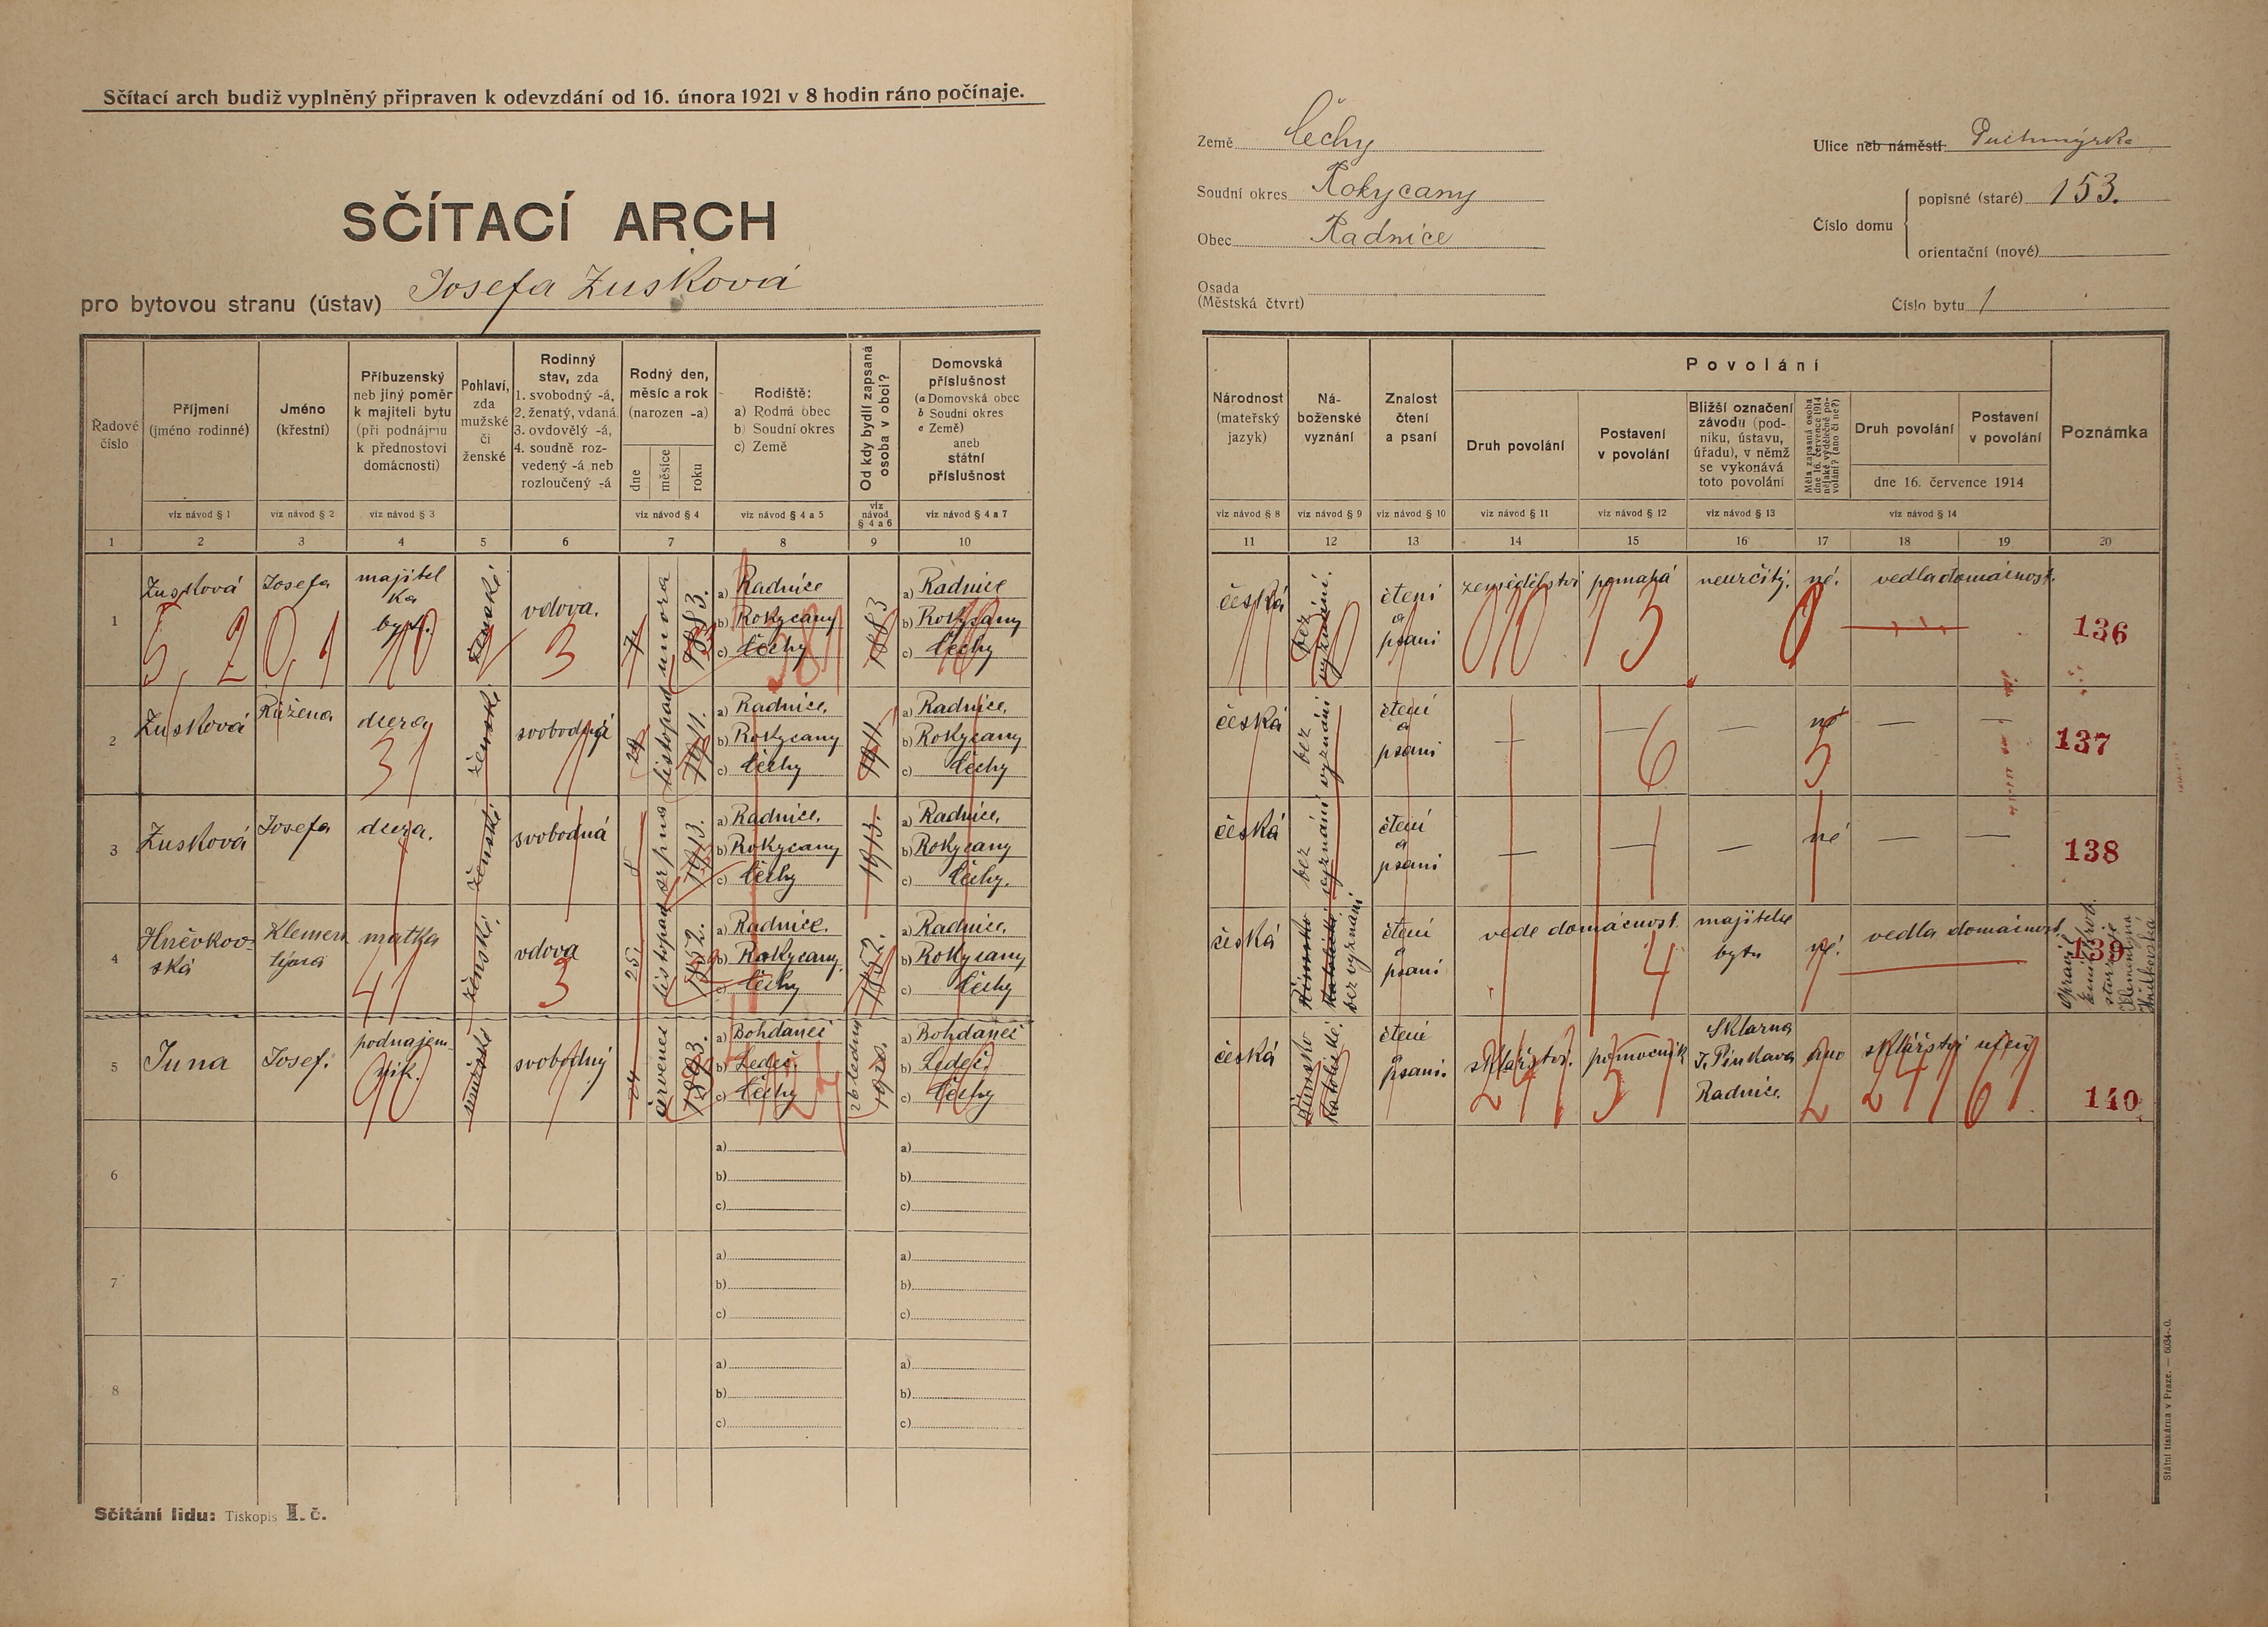 Sčítací arch budiž vyplněný připraven k odevzdání od 16. února 1921 v 8 hodin ráno počínaje.
SČÍTACÍ ARCH
pro bytovou stranu (ústav) Josefa Zusková
Země Čechy
Soudní okres Rokycany
Obec Radnice
Osada
(Městská čtvrt)
Ulice neb náměstí
Číslo domu
popisné (staré) 153.
orientační (nové)
Číslo bytu 1
Řadové číslo
Příjmení (jméno rodinné)
viz návod § 1
Jméno (křestní)
viz návod § 2
Příbuzenský neb jiný poměr k majiteli bytu (při podnájmu k přednostovi domácnosti)
viz návod § 3
Pohlaví, zda mužské či ženské
Rodinný stav, zda
1. svobodný -á,
2. ženatý, vdaná
3. ovdovělý -á,
4. soudně rozvedený -á neb rozloučený -á
Rodný den, měsíc a rok (narozen -a)
dne měsíce roku
viz návod § 4
Rodiště:
a) Rodná obec
b) Soudní okres
c) Země
viz návod § 4 a 5
Od kdy bydlí zapsaná osoba v obci?
viz návod § 4 a 6
Domovská příslušnost
(a Domovská obec
b Soudní okres
c Země)
aneb státní příslušnost
viz návod § 4 a 7
1 2 3 4 5 6 7 8 9 10
Národnost (mateřský jazyk)
viz návod § 8
Náboženské vyznání
viz návod § 9
Znalost čtení a psaní
viz návod § 10
Povolání
Druh povolání
viz návod § 11
Postavení v povolání
viz návod § 12
Bližší označení závodu (podniku, ústavu, úřadu), v němž se vykonává toto povolání
viz návod § 13
Měla zapsaná osoba dne 16. července 1914 nějaké výdělečné povolání? (ano či ne?)
Druh povolání
Postavení v povolání
dne 16. července 1914
viz návod § 14
Poznámka
11 12 13 14 15 16 17 18 19 20
1 Zusková Josefa majitelka bytu. ženské vdova. 7. února 1883. a) Radnice b) Rokycany c) Čechy 1883 a) Radnice b) Rokycany c) Čechy
česká bez vyznání. čtení a psaní zemědělství pomahá neurčitý. né. vedla domácnost. 136
2 Zusková Růžena dcera ženské svobodná 29 listopad 1911. a) Radnice. b) Rokycany c) Čechy 1911. a) Radnice. b) Rokycany c) Čechy
česká bez vyznání čtení a psaní — — — né — — 137
3 Zusková Josefa dcera. ženské svobodná 8 srpna 1913. a) Radnice. b) Rokycany c) Čechy 1913. a) Radnice. b) Rokycany c) Čechy.
česká bez vyznání čtení a psaní — — — né — — 138
4 Hněvkovská Klementýna matka ženské. vdova 25. listopad 1852. a) Radnice. b) Rokycany. c) Čechy 1852. a) Radnice. b) Rokycany c) Čechy
česká Římsko Katolické bez vyznání čtení a psaní vede domácnost majitelce bytu né. vedla domácnost 139
5 Juna Josef. podnajemnik. mužské svobodný 24 červenec 1893. a) Bohdaneč b) Ledeč. c) Čechy 26 ledna 1920. a) Bohdaneč b) Ledeč. c) Čechy
česká Římsko Katolické. čtení a psaní. sklářství. pomocník Sklarna J. Pinkava Radnice. Ano sklářství učeň 140
6 a) b) c) a) b) c)
7 a) b) c) a) b) c)
8 a) b) c) a) b) c)
Sčítání lidu: Tiskopis I. č.
Státní tiskárna v Praze. — 6034-0.